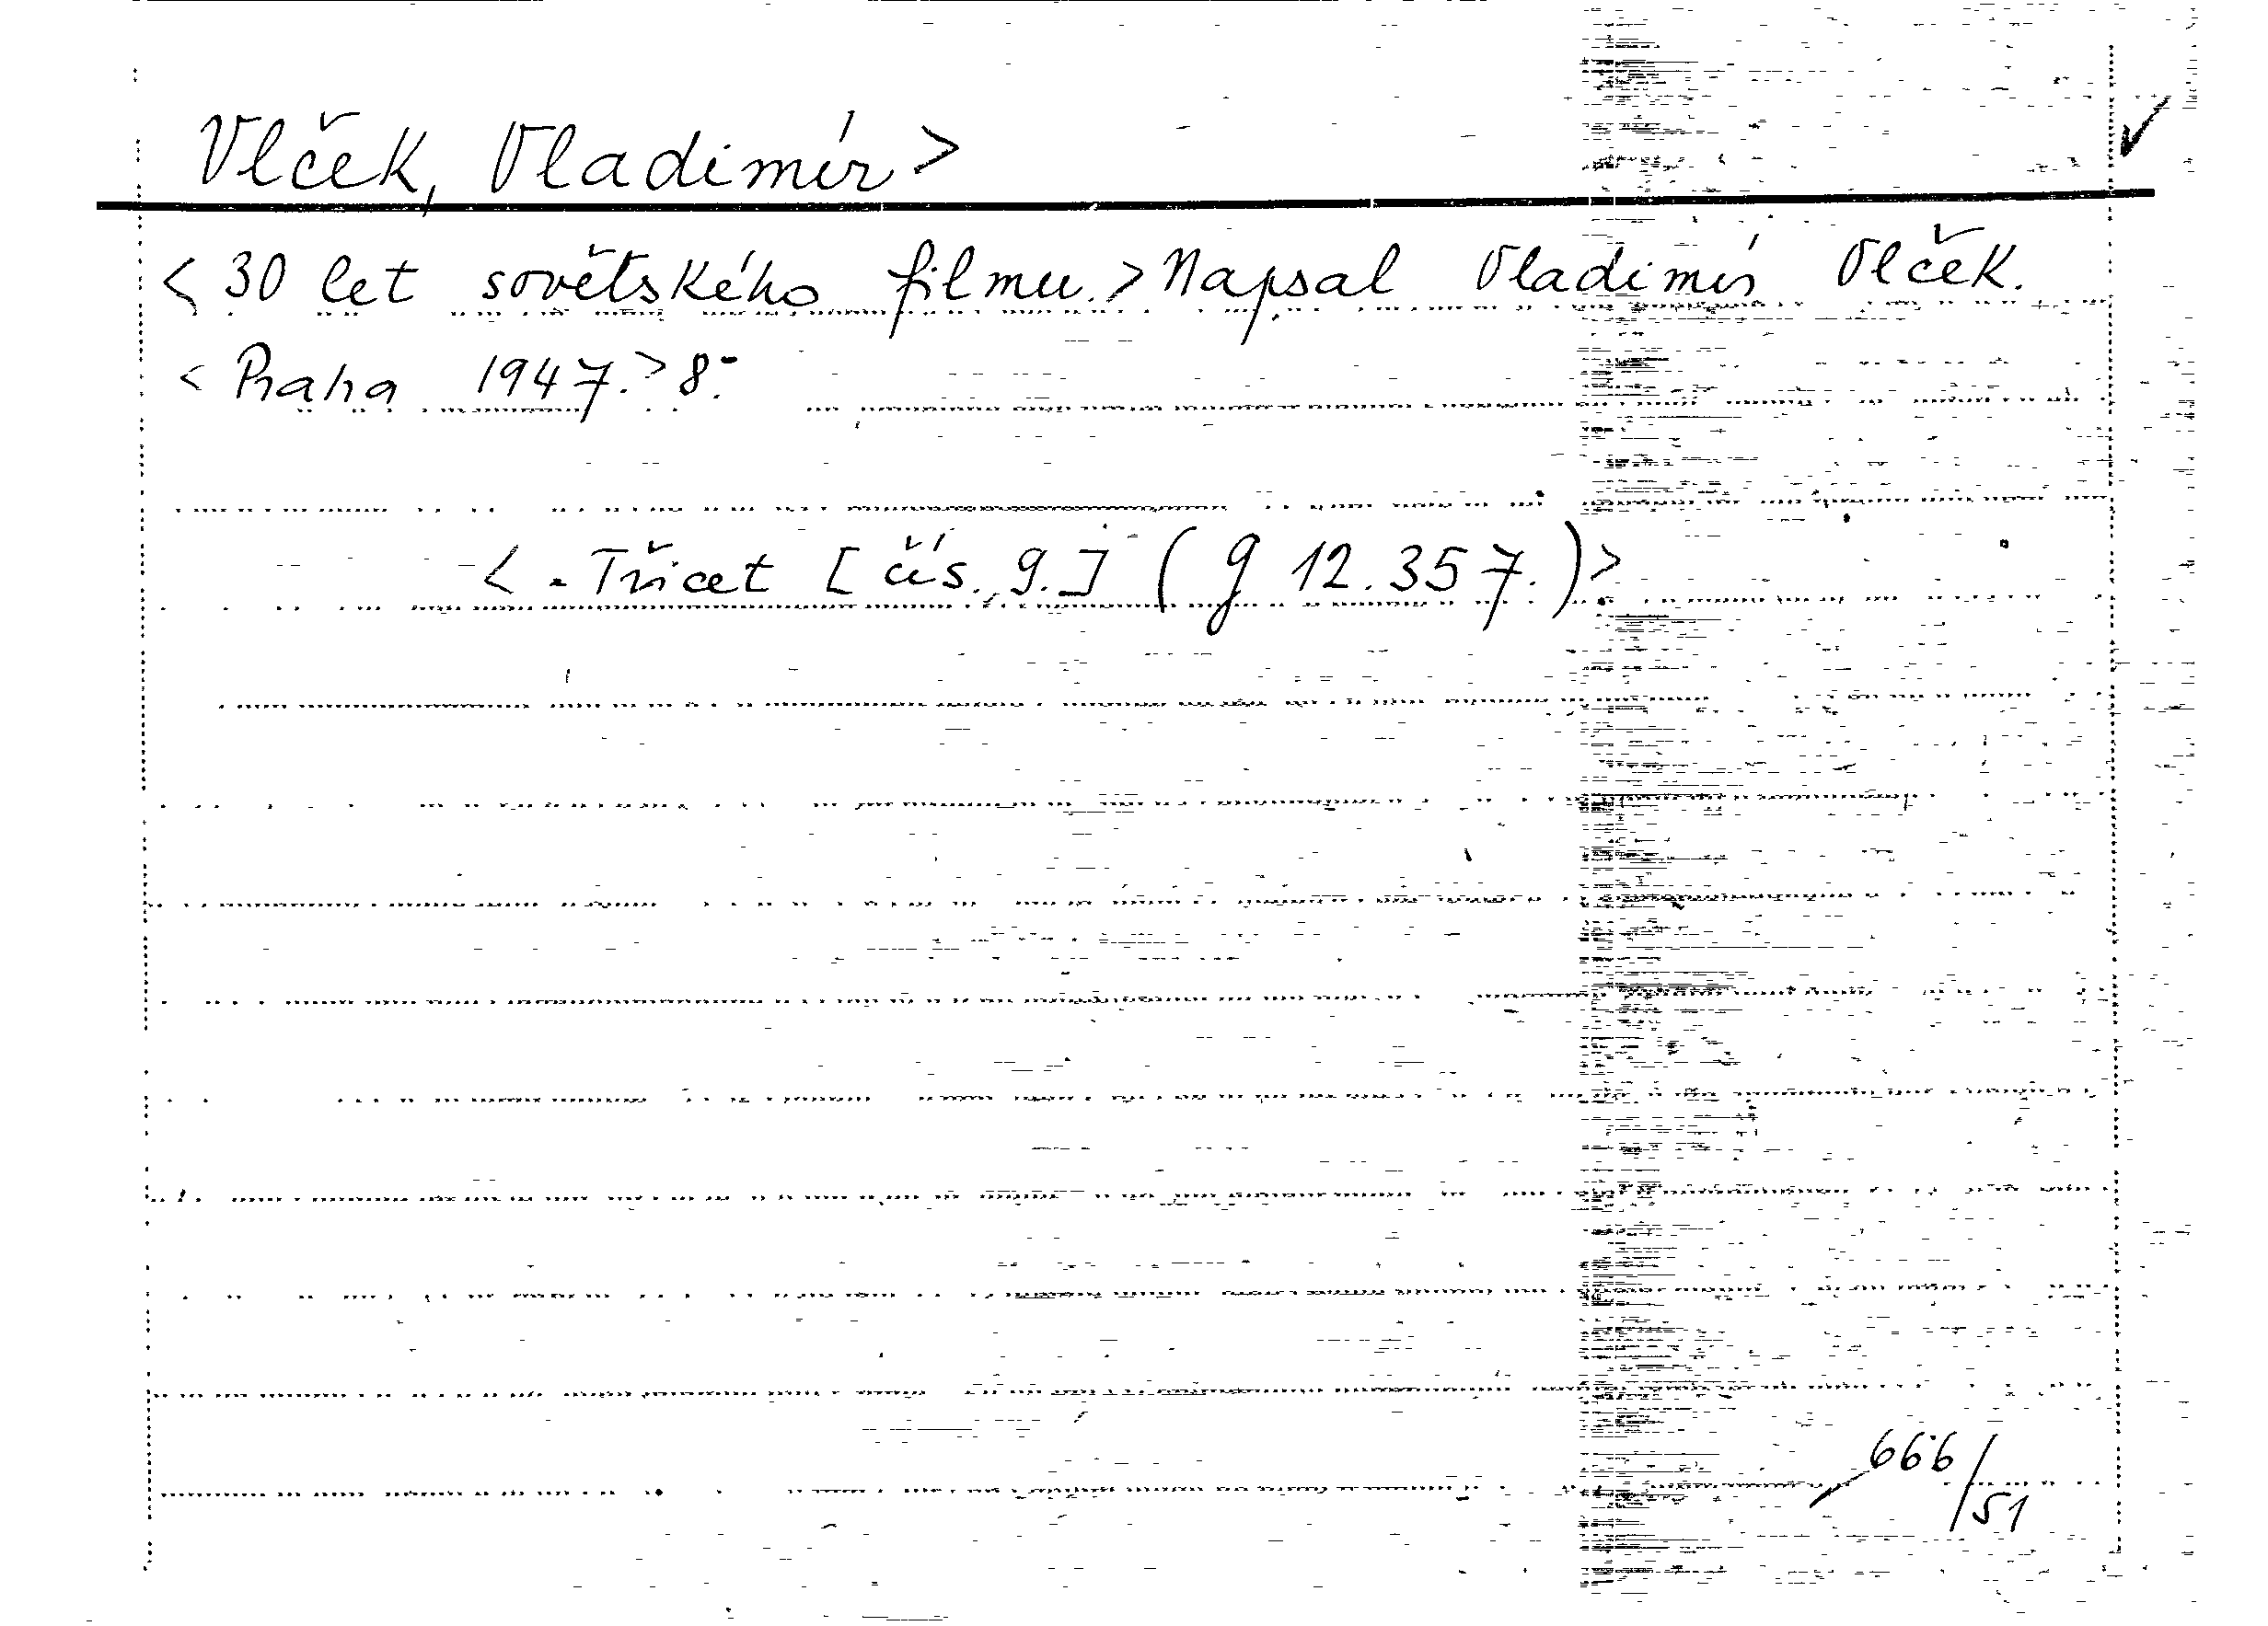 Vlček, Vladimír>
<30 let sovětského filmu.> Napsal Vladimír Vlček.
<Praha 1947.> 8°.
<-Třicet [čís., g.] (g 12.357.)>
666/51